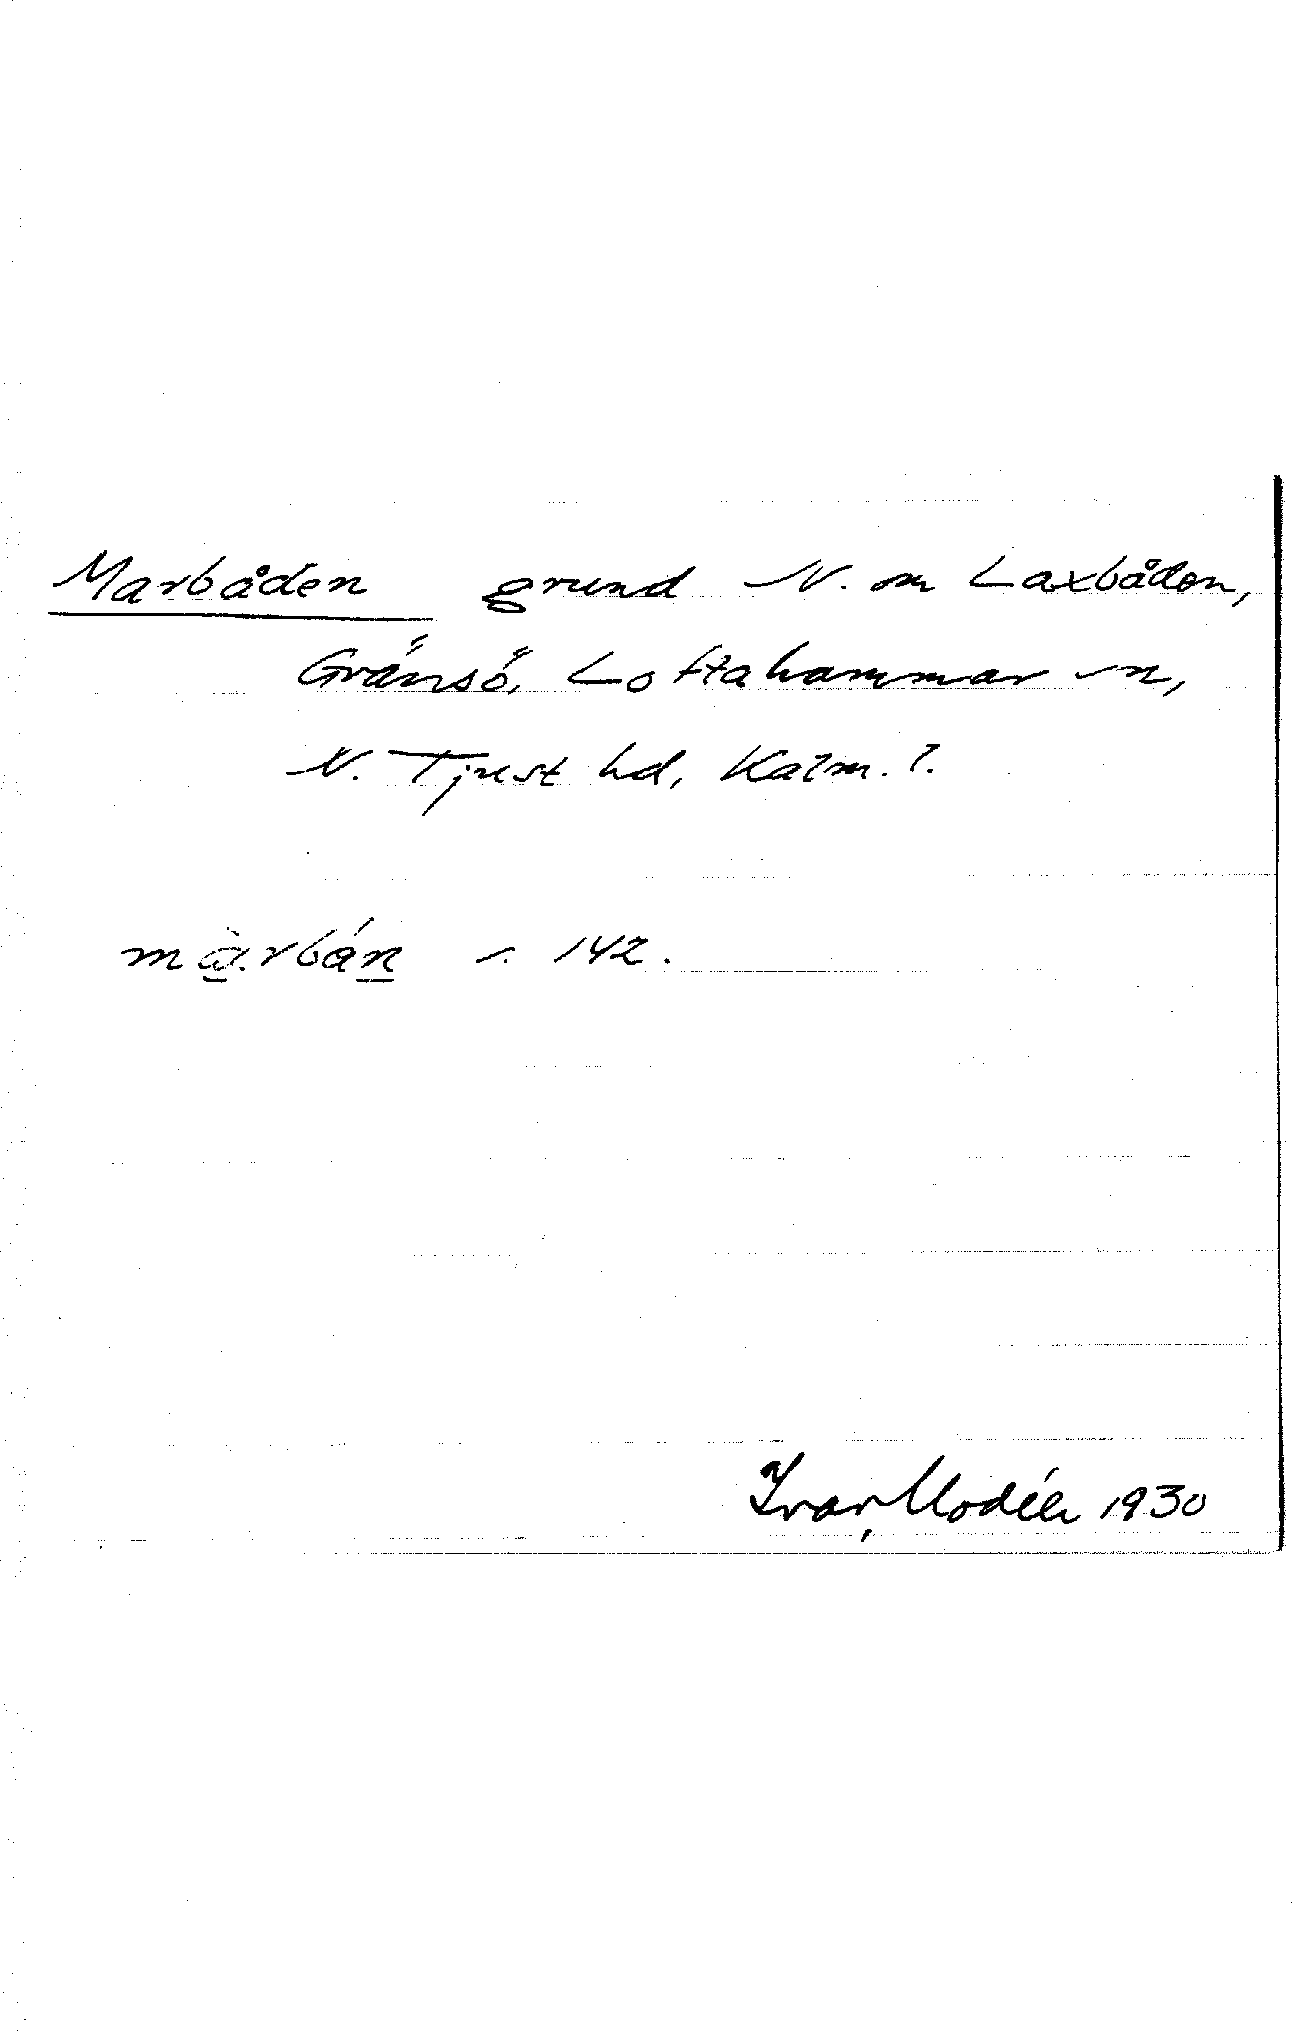 Marbåden grund N. om Laxbåden,
Gränsö, Loftahammar sn,
N. Tjust hd, Kalm. l.
màrbán 142.
Ivar Modéer 1930